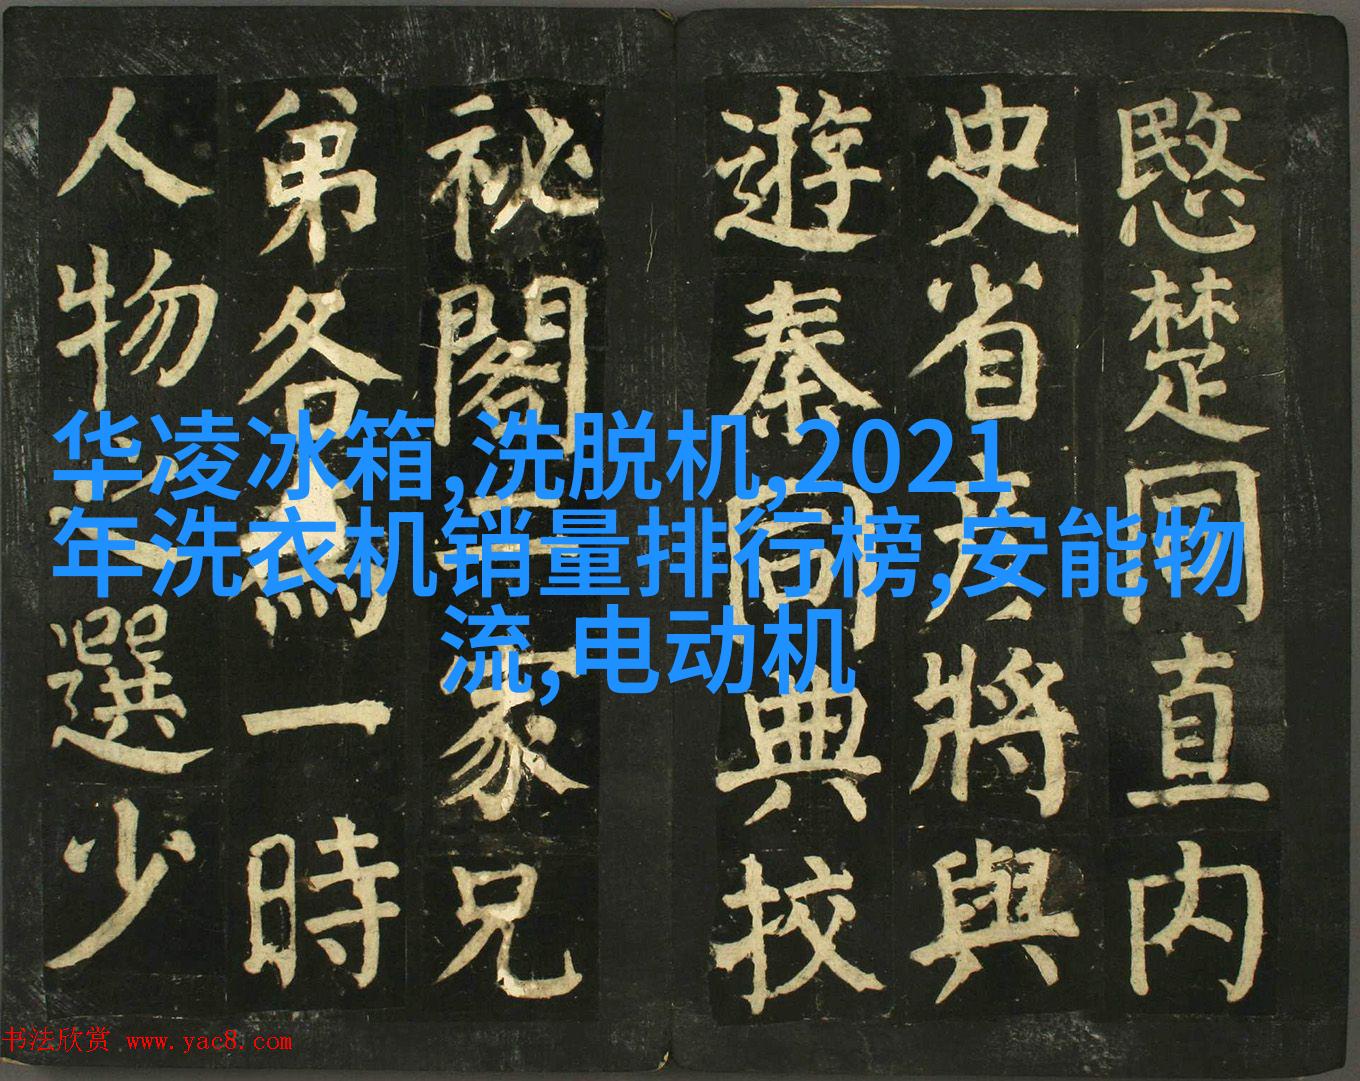 愍楚同直内
史省彥將與
遊秦同典校
祕閣二家兄
弟各為一時
人物之選少
华凌冰箱,洗脱机,2021
年洗衣机销量排行榜,安能物
流,电动机
书法欣赏 www.yac8.com